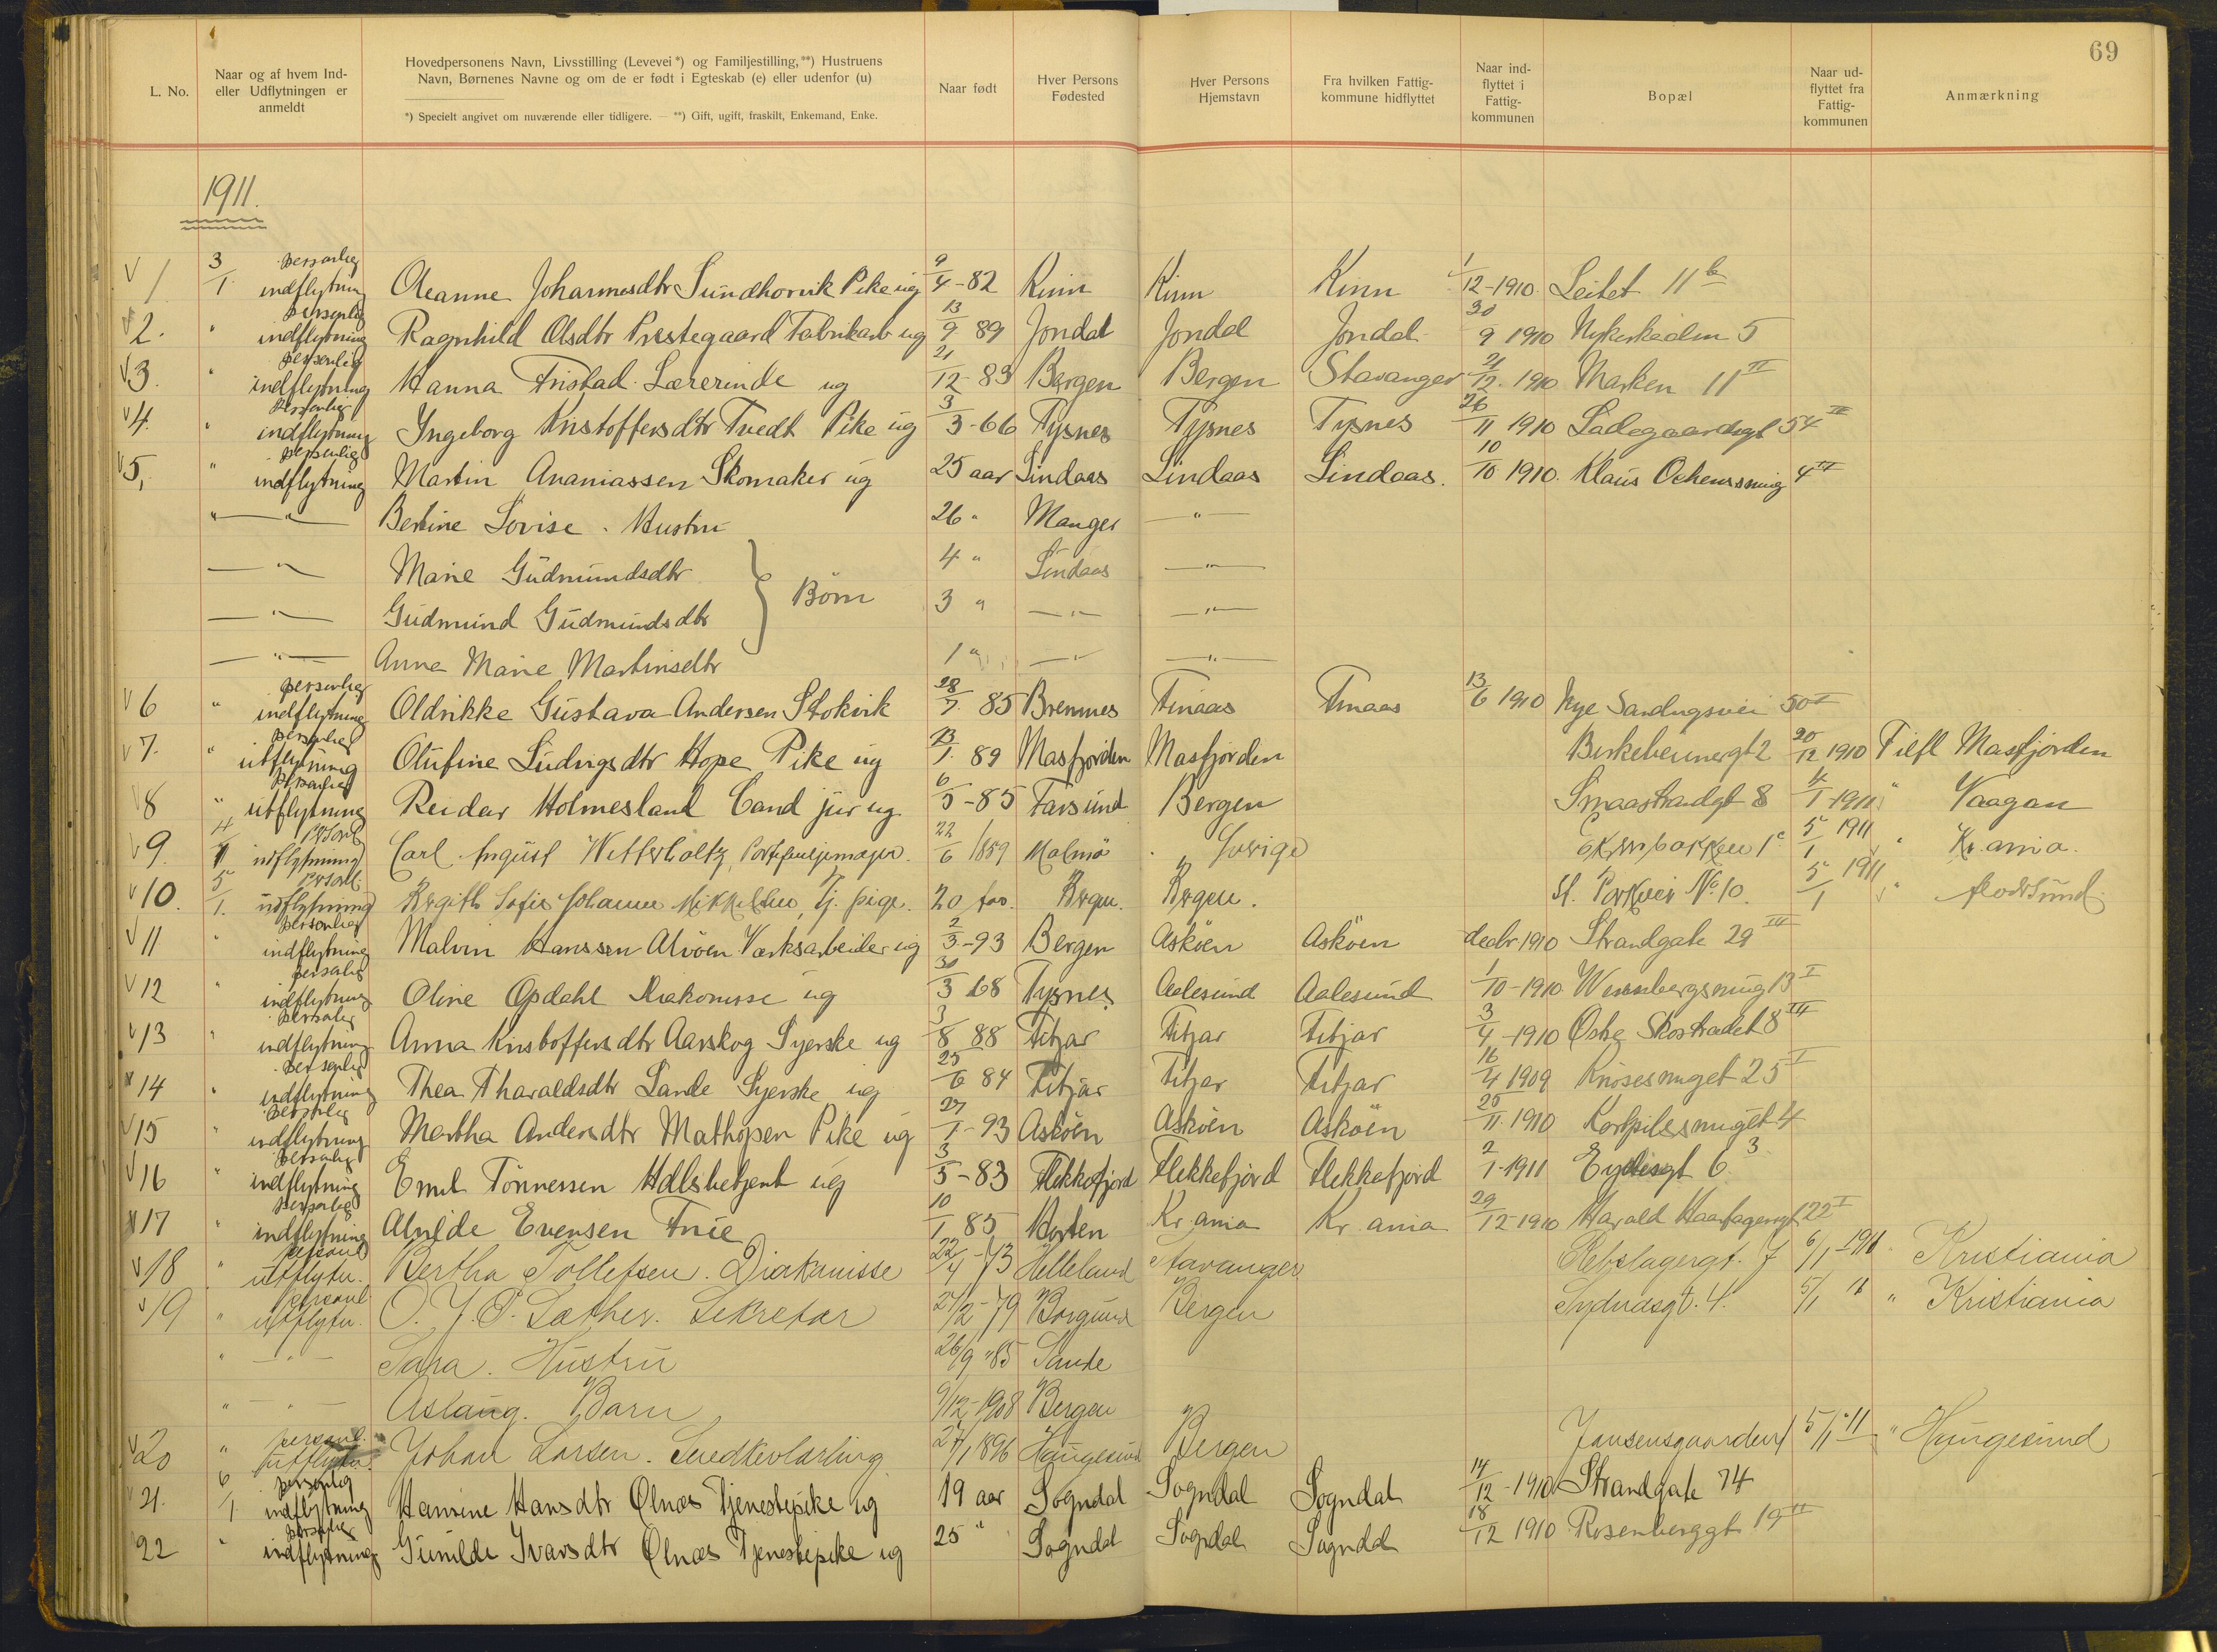 69
L. No.
Naar og af hvem Ind- eller Udflytningen er anmeldt
Hovedpersonens Navn, Livsstilling (Levevei*) og Familjestilling,**) Hustruens Navn, Børnenes Navne og om de er født i Egteskab (e) eller udenfor (u)
*) Specielt angivet om nuværende eller tidligere. — **) Gift, ugift, fraskilt, Enkemand, Enke.
Naar født
Hver Persons Fødested
Hver Persons Hjemstavn
Fra hvilken Fattigkommune hidflyttet
Naar indflyttet i Fattigkommunen
Bopæl
Naar udflyttet fra Fattigkommunen
Anmærkning
1911.
1 3/1 personlig indflytning Oleanne Johannesdtr Sundhovik Pike ug 9/4-82 Kinn Kinn Kinn 1/12-1910 Leitet 11 b
2. " personlig indflytning Ragnhild Olsdtr Prestegaard Fabrikarb ug 13/9 89 Jondal Jondal Jondal 30/9 1910 Nykirkealm 5
3. " personlig indflytning Hanna Fristad Lærerinde ug 21/12-83 Bergen Bergen Stavanger 21/12. 1910 Marken 11 II
4. " personlig indflytning Ingeborg Kristoffersdtr Tvedt Pike ug 3/3-66 Tysnes Tysnes Tysnes 26/11 1910 Ladegaardsgt 54 II
5, " personlig indflytning Martin Ananiassen Skomaker ug 25 aar Lindaas Lindaas Lindaas. 10/10 1910. Klaus Ockenssmug 4 II
" Bertine Lovise. Hustru 26 " Manger "
" Marie Gudmundsdtr 4 " Lindaas "
Børn
" Gudmund Gudmundsdtr 3 " " "
" Anna Marie Martinsdtr 1 " " "
6 " personlig indflytning Oldrikke Gustava Andersen Stokvik 28/7. 85 Bremnes Finaas Finaas 13/6 1910 Nye Sandvigsvei 50 I
7. " personlig utflytning Olufine Ludvigsdtr Hope Pike ug 23/1. 89 Masfjorden Masfjorden Birkebeinergt 2 20/12 1910 Tilfl Masfjorden
8 " personlig utflytning Reidar Holmesland Cand jur ug 6/5-85 Farsund Bergen Smaastrandgt 8 4/1-1911 " Vaagan
9. 4/1 personl utflytning Carl August Wetterholtz, Portefeuljemager. 22/6 1859 Malmö Sverige 5/1 1911 " Kr.ania.
10. 5/1. personl. utflytning Bergith Sofie Johanne Mikkelsen, Tj. pige. 20 aar. Bergen. Bergen. St. Parkvei No. 10. 5/1 1911 "
11 " personlig indflytning Malvin Hanssen Alvøen Værksarbeider ug 2/3-93 Bergen Askøen Askøen decbr 1910 Strandgate 29 III
12 " personlig indflytning Oline Opdahl Diakonisse ug 30/3 68 Tysnes Aalesund Aalesund 1/10-1910 Wesenbergsmug 13 I
13 " personlig indflytning Anna Kristoffersdtr Aarskog Syerske ug 3/8 88 Fitjar Fitjar Fitjar 3/4-1910 Østre Skostrædet 8 III
14 " personlig indflytning Thea Tharaldsdtr Lande Syerske ug 25/6 84 Fitjar Fitjar Fitjar 16/4 1909 Knøsesmuget 25 I
15 " personlig indflytning Martha Andersdtr Mathopen Pike ug 27/1-93 Askøen Askøen Askøen 25/11.1910 Kortpilsmuget 4
16 " personlig indflytning Emil Tønnessen Hdlsbetjent ug 3/5-83 Flekkefjord Flekkefjord Flekkefjord 2/1-1911 Eydesgt 6. 3
17 " personlig indflytning Alvilde Evensen Frue 10/1 85 Horten Kr. ania Kr. ania 29/12-1910 Harald Haarfagersgt 22 I
18 " personl utflytn. Bertha Tollefsen. Diakonisse 22/4-73 Helleland Stavanger Rebslagergt. 7 6/1-1911. Kristiania
19 " personl utflytn. O. J. P. Sæther. Sekretær 24/2-79 Borgund Bergen Sydnæsgt. 4. 5/1 11 " Kristiania
" " Sara. Hustru 26/9 "85 Sande
" " Aslaug. Barn 9/12-1908 Bergen
20 " personl. utflytn. Johan Larsen. Snedkerlærling 27/1 1896 Haugesund Bergen Jansensgaarden 5/1 11 " Haugesund
21. 6/1. personlig indflytning Hansine Hansdtr Ølnæs Tjenestepike ug 19 aar Sogndal Sogndal Sogndal 14/12-1910 Strandgate 74
22 " personlig indflytning Gunilde Ivarsdtr Ølnæs Tjenestepike ug 25 " Sogndal Sogndal Sogndal 18/12 1910 Rosenberggt. 19 II